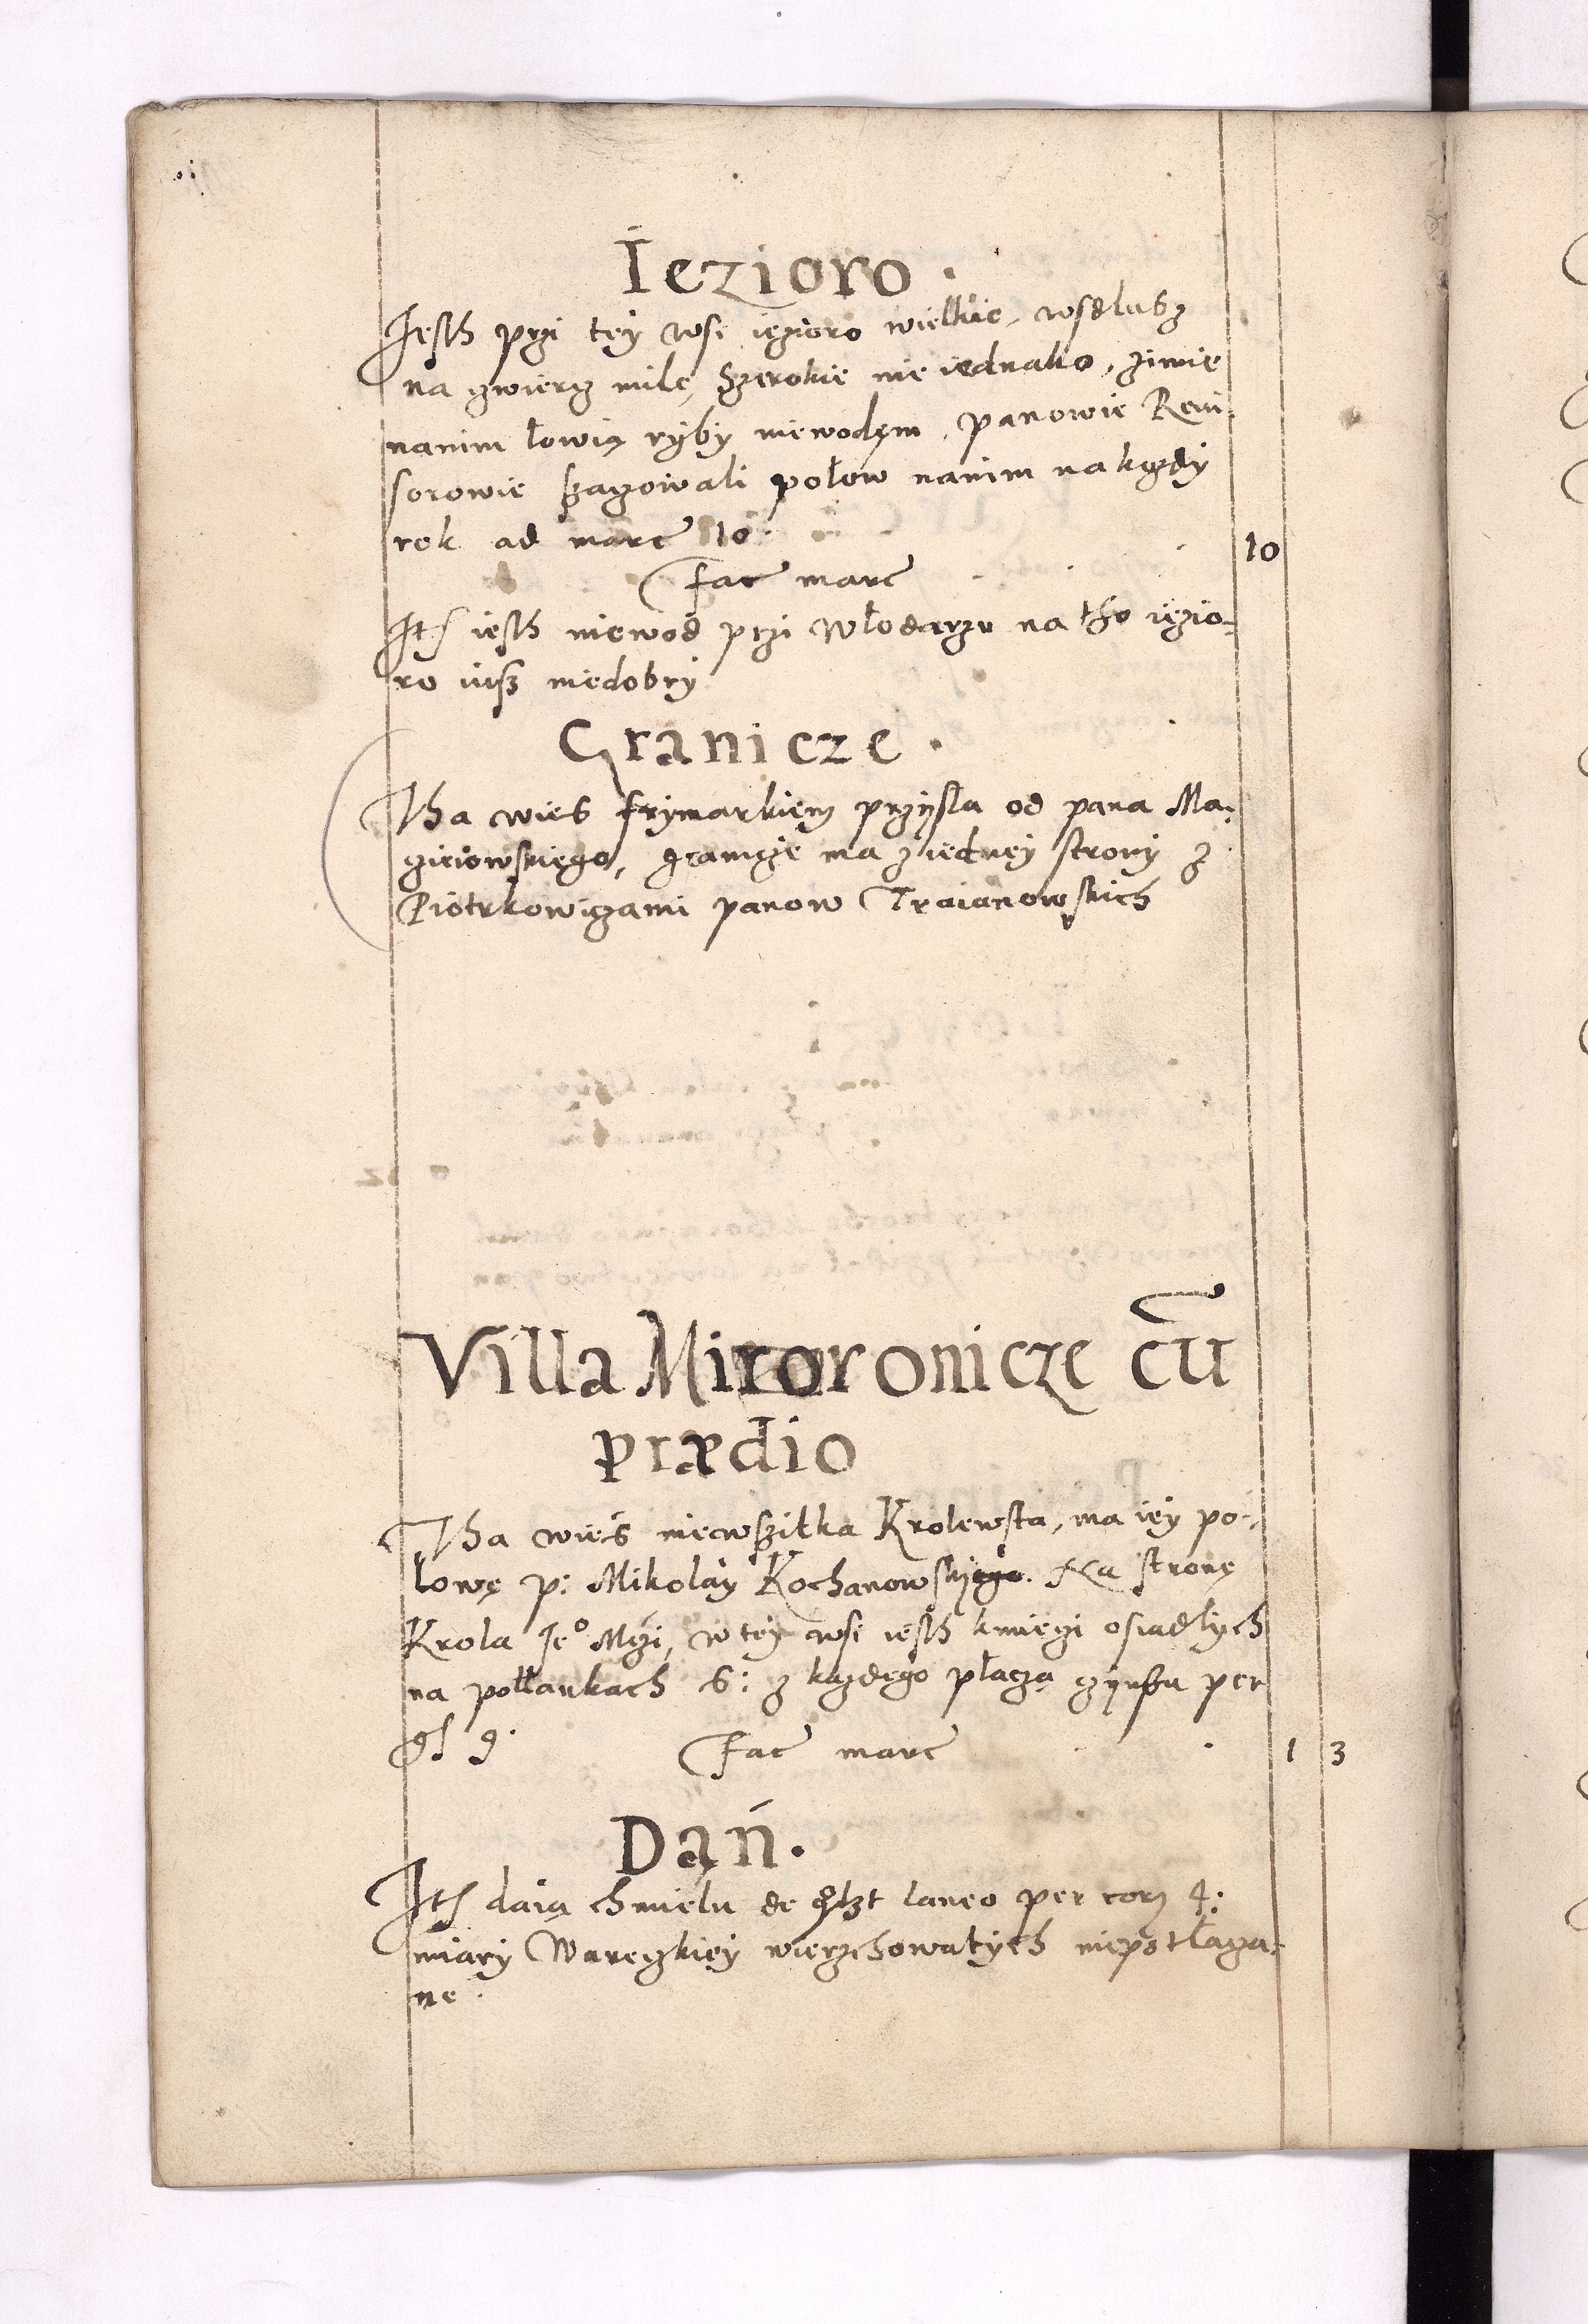 Iezioro.
Iesth przi tey wsi iezioro wielkie, wsdlusz
na czwiercz mile, szerokie nie iednako, zimie
nanim łowią ryby niewodem, panowie Rewi-
sorowie szaczowali połow nanim na kozdy
rok ad marc 10. 10
fac marc
Ite iesth niewod przi włodarzu na tho iezio-
ro iusz niedobry
Granicze.
Tha wies frymarkiem przysla od pana Ma-
cziciowskiego, granicze ma z iedney strony z
Piotrkowiczami panow Traianowskich
Villa Miroronicze cu
prædio
Tha wieś niewszitka Krolewska, ma iey po-
łowę p: Mikołay Kochanowsky. Na stronę
Krola Ieo Mczi, w tey wsi iesth kmieczi osiadlych
na pollankach 6: z kazdego płaczą czynszu per
gs 9. Fac marc 1 3
Dań.
Ite daią chmielu de laneo per corz 4:
miary Wareczkiey wierzchowatych niepotłacza-
ne.